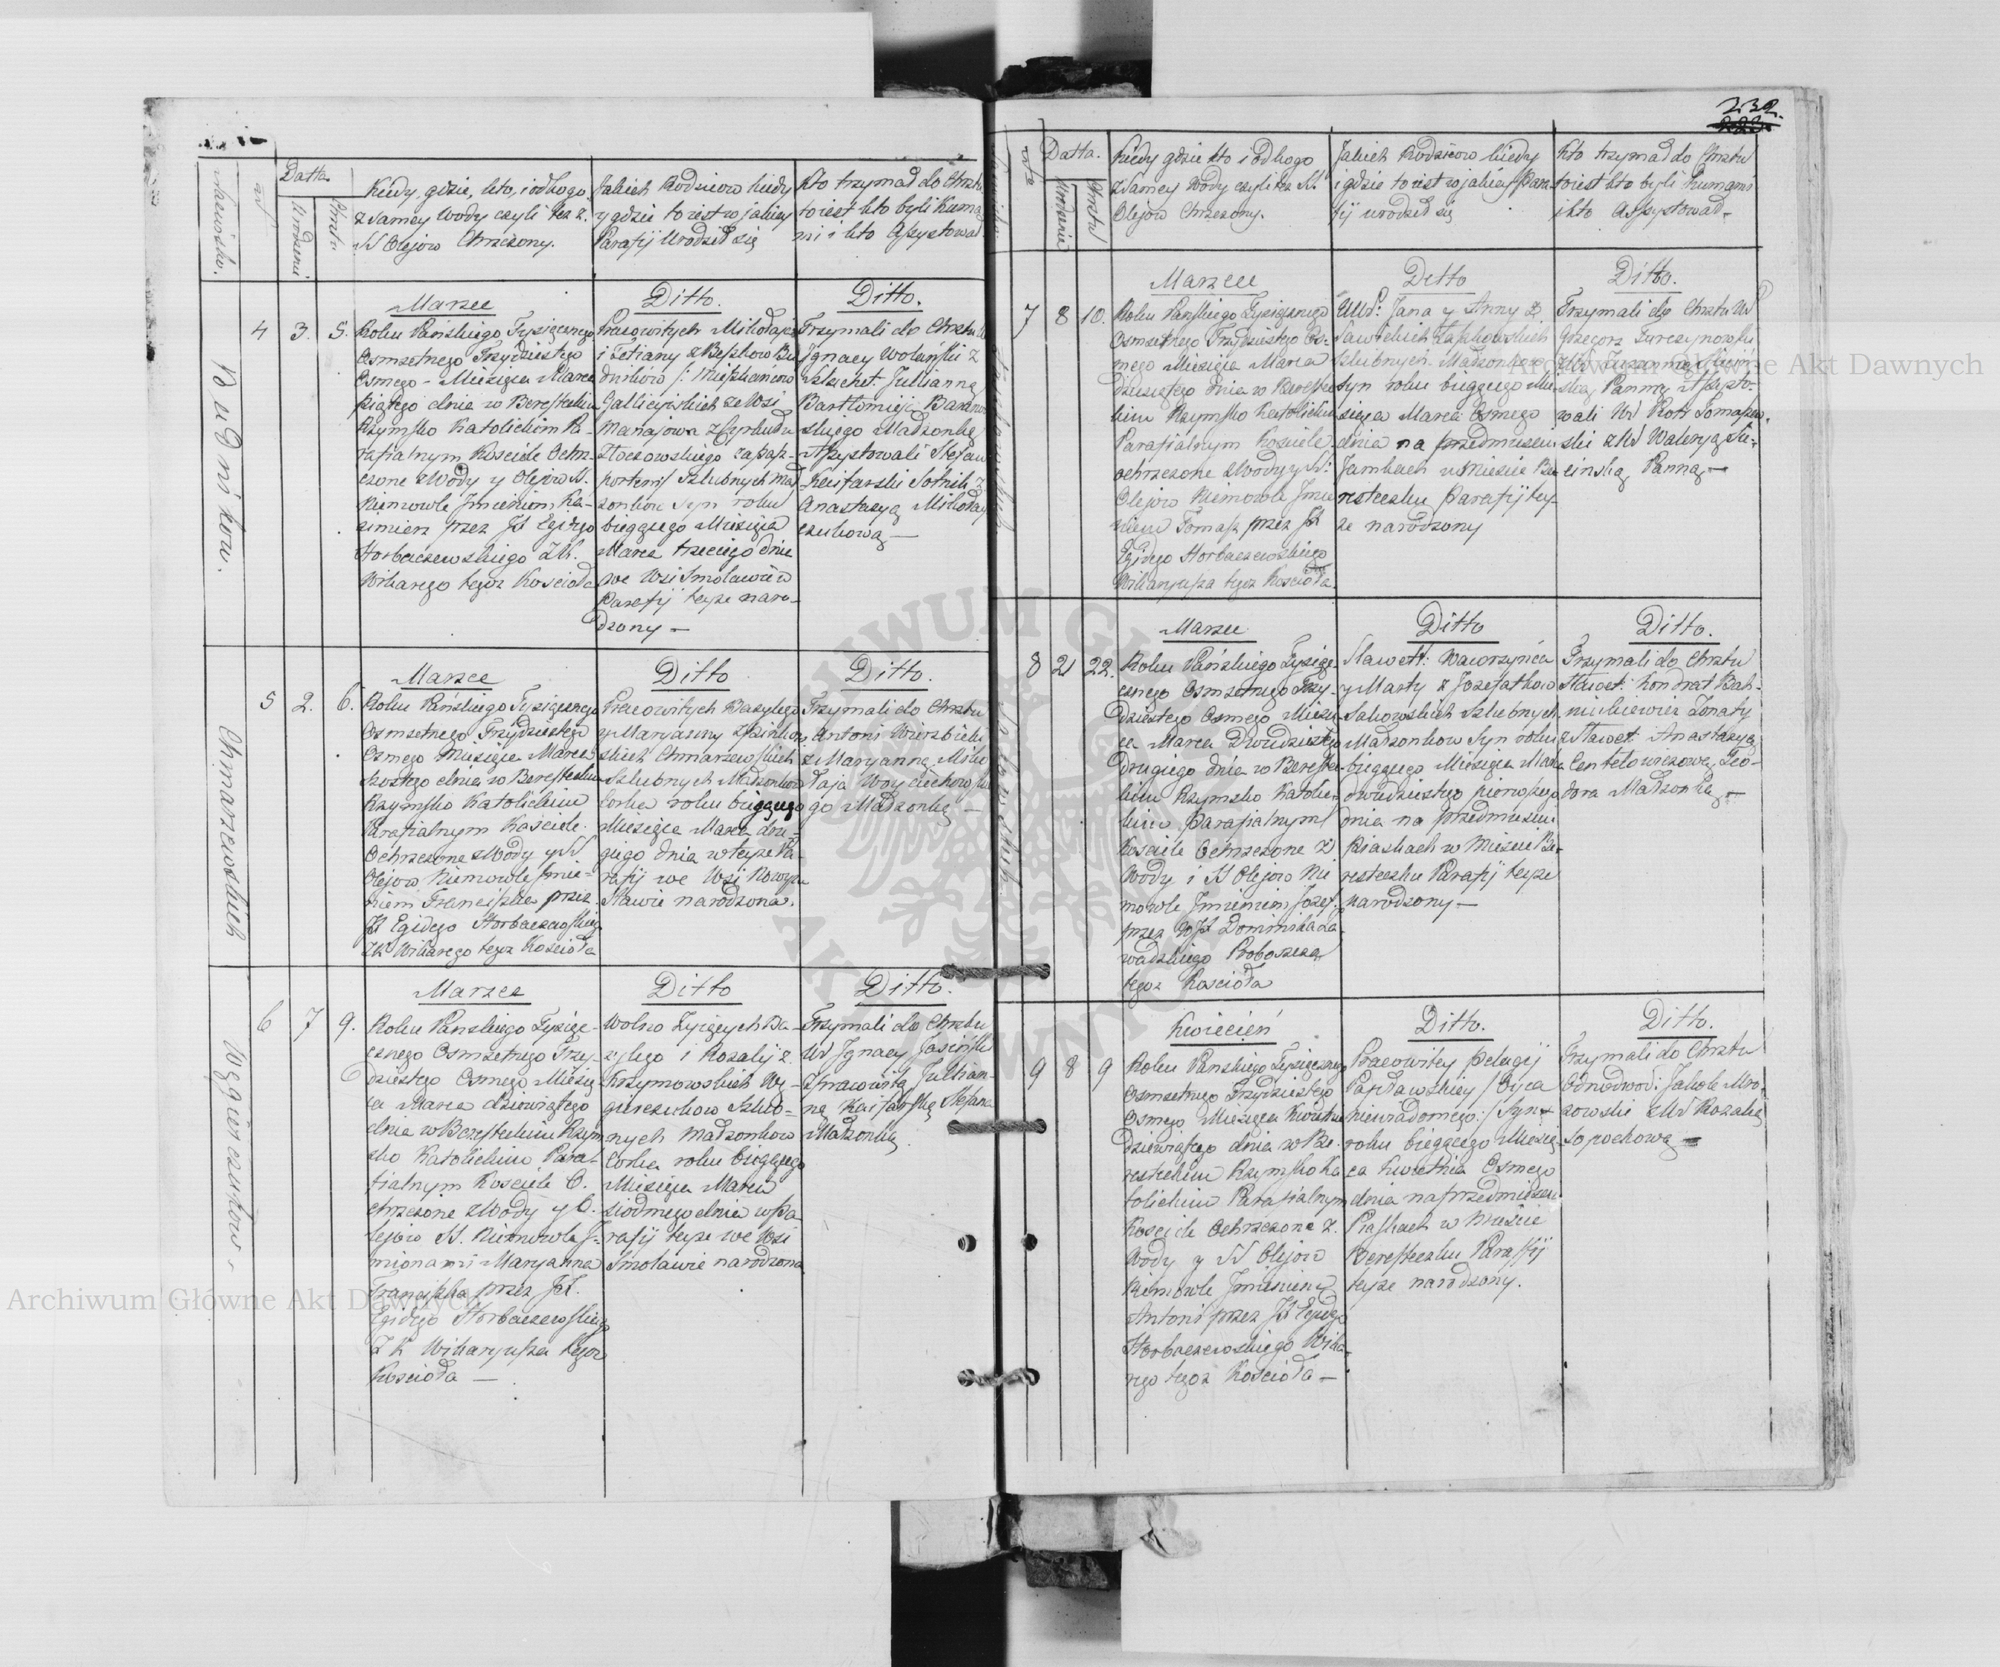 232.
Datta
Urodzeni
Chrztu
Nazwisko.
Kiedy, gdzie, kto, i od kogo
z Samey Wody czyli też z
SS Olejow Chrzczony.
Jakich Rodzicow kiedy
y gdzie to iest w jakiey
Parafij Urodził się
Kto trzymał do Chrztu
to iest kto byli Kuma
mi i kto Assystował
Budnikow.
4 3. 5.
Marzec
Roku Pańskiego Tysiącznego
Osmsetnego Trzydziestego
Osmego - Miesiąca Marca
piątego dnia w Beresteckim
Rzymsko Katolickim Pa-
rafialnym Kosciele Ochrz-
czone z Wody y Olejow SS.
Niemowle Jmieniem Ka-
zimierz przez JX Egidego
Horbaczewskiego ZK.
Wikarego tegoz Kościoła
Ditto.
Pracowitych Mikołaja
i Tetiany z Beszkow Bu
dnikow /: Mieszkańcow
Gallicyiskich ze Wsi
Manajowa z Cyrkułu
Złoczowskiego za pasz-
portem:/ Szlubnych Mał
zonkow Syn roku
bieżącego Miesiąca
Marca trzeciego dnia
we Wsi Smolawie w
Parafij teyze naro-
dzony —
Ditto.
Trzymali do Chrztu
Ignacy Wolański z
Szlachet. Julianną
Bartłomieja Baranow
skiego Małzonką
Assystowali Stefan
Kaifarski Sotnik z
Anastazyą Mikołay
czukową —
Chmarzewskich
5 2. 6.
Marzec
Roku Pańskiego Tysiącznego
Osmsetnego Trzydziestego
Osmego Miesiąca Marca
szostego dnia w Beresteckim
Rzymsko Katolickim
Parafialnym Kościele
Ochrzczone z Wody y SS
Olejow Niemowle Jmie-
niem Franciszka przez
JX Egidego Horbaczewskiego
ZK Wikarego tegoz Kościoła
Ditto
Pracowitych Bazylego
y Maryanny z Jasinkow
skich Chmarzewskich
Szlubnych Małzonkow
Corka roku bieżącego
Miesiąca Marca dru-
giego dnia w teyze Pa-
rafij we Wsi Nowym
Stawie narodzona.
Ditto.
Trzymali do Chrztu
Antoni Wierzbicki
z Maryanną Miko
łaja Woyciechowski
go Małzonką —
Węgierczukow.
6 7 9.
Marzec
Roku Panskiego Tysią-
cznego Osmsetnego Trzy-
dziestego Osmego Miesią
ca Marca dziewiątego
dnia w Beresteckim Rzym
sko Katolickim Para-
fialnym Kosciele O-
chrzczone z Wody y O-
lejow SS. Niemowle J-
mionami Maryanna
Franciszka przez JX.
Egidego Horbaczewskiego
Z K Wikaryusza tegoz
Kościoła —
Ditto
Wolno Zyiących Ba-
zylego i Rozalij z
Krzymowskich Wę-
gierczukow Szlub-
nych Małzonkow
Corka roku bieżącego
Miesiąca Marca
siodmego dnia w Pa
rafij teyze we Wsi
Smolawie narodzona.
Ditto.
Trzymali do Chrztu
Ur Jgnacy Jasiński
z Prawowitą Jullian-
ną Kaifarską Stefana
Małzonką
Datta.
Urodzenie
Chrztu
Kiedy gdzie kto i od kogo
z Samey Wody czyli tez SS.
Olejow Chrzczony.
Jakich Rodzicow kiedy
i gdzie to iest w jakiey Para
fij urodził się
Kto trzymał do Chrztu
to iest kto byli Kumami
i kto Assystował-
7 8 10.
Marzec
Roku Pańskiego Tysiącznego
Osmsetnego Trzydziestego Os-
mego Miesiąca Marca
dziesiątego dnia w Bereste
ckim Rzymsko Katolickim
Parafialnym Kościele
ochrzczone z Wody y SS:
Olejow Niemowle Jmie
niem Tomasz przez JX
Egidego Horbaczewskiego
Wikaryusza tegoz Kościoła
Ditto
Uur: Jana y Anny z
Sawickich
Szlubnych Małzonkow
Syn roku bieżącego Mie
siąca Marca Osmego
dnia na przedmiesciu
Zambach w Miescie Be
resteczku Parafij tey-
ze narodzony
Ditto.
Trzymali do Chrztu Ur
Grzegorz Turczynowski
z Ur Zuzanną
ską Panną Assysto-
wali Ur Piotr Tomaszew
ski z Ur Waleryą Sie-
cinską Panną —
8 21 22.
Marzec
Roku Pańskiego Tysią-
cznego Osmsetnego Trzy-
dziestego Osmego Miesią
ca Marca Dwudziestego
drugiego dnia w Bereste
ckim Rzymsko Katolic-
kim Parafialnym
Kosciele Ochrzczone z
Wody i SS Olejow Nie
mowle Jmieniem Jozef
przez WJX Dominika Za
wadzkiego Proboszcza
tegoz Kościoła
Ditto
Slawett: Wawrzyńca
y Marty z Jozefatkow
Sakowskich Szlubnych
Małzonkow Syn roku
bieżącego Miesiąca Marca
dwudziestego pierwszego
dnia na przedmiesciu
Piaskach w Miescie Be-
resteczku Parafij teyze
narodzony —
Ditto.
Trzymali do Chrztu
Slawet: Kondrat Bah-
niukiewicz Zonaty
z Slawet. Anastazyą
Centelowiczową, Teo-
dora Małzonką —
9 8 9
Kwiecień
Roku Pańskiego Tysiącznego
Osmsetnego Trzydziestego
Osmego Miesiąca Kwietnia
Dziewiątego dnia w Be-
resteckim Rzymsko Ka
tolickim Parafialnym
Kosciele Ochrzczone z
Wody y SS Olejow
Niemowle Jmieniem
Antoni przez JX Egidego
Horbaczewskiego Wika-
rego tegoz Kościoła —
Ditto.
Pracowitey Pelagij
Pasławskiey /: Oyca
niewiadomego :/ Syn
roku bieżącego Miesią
ca Kwietnia Osmego
dnia na przedmiesciu
Piaskach w Miescie
Beresteczku Parafij
teyze narodzony.
Ditto.
Trzymali do Chrztu
Odnodwor: Jakob Mro-
zowski z Ur Rozalią
Sopochową —
Archiwum Główne Akt Dawnych
Archiwum Główne Akt Dawnych